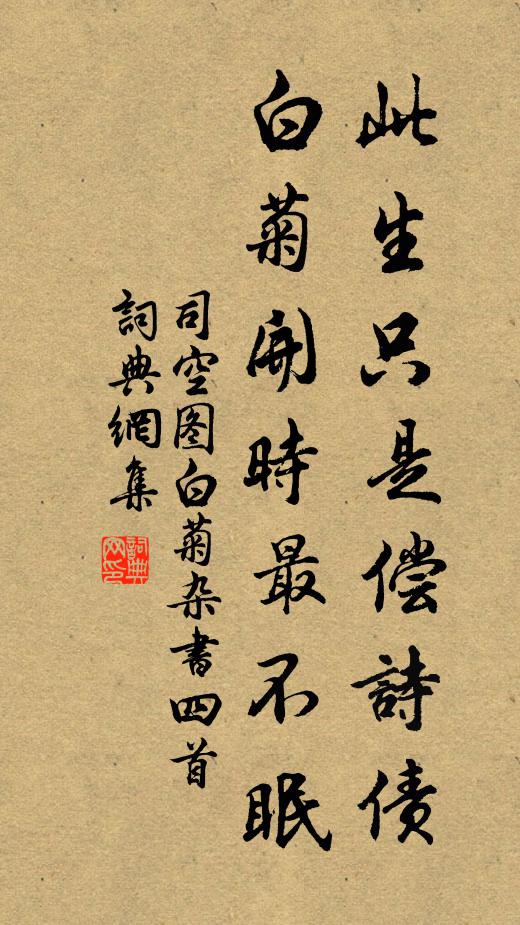 此生只是偿詩债
白菊開時最不眠
司空图白菊杂書四首
詞典網集
詞典网印